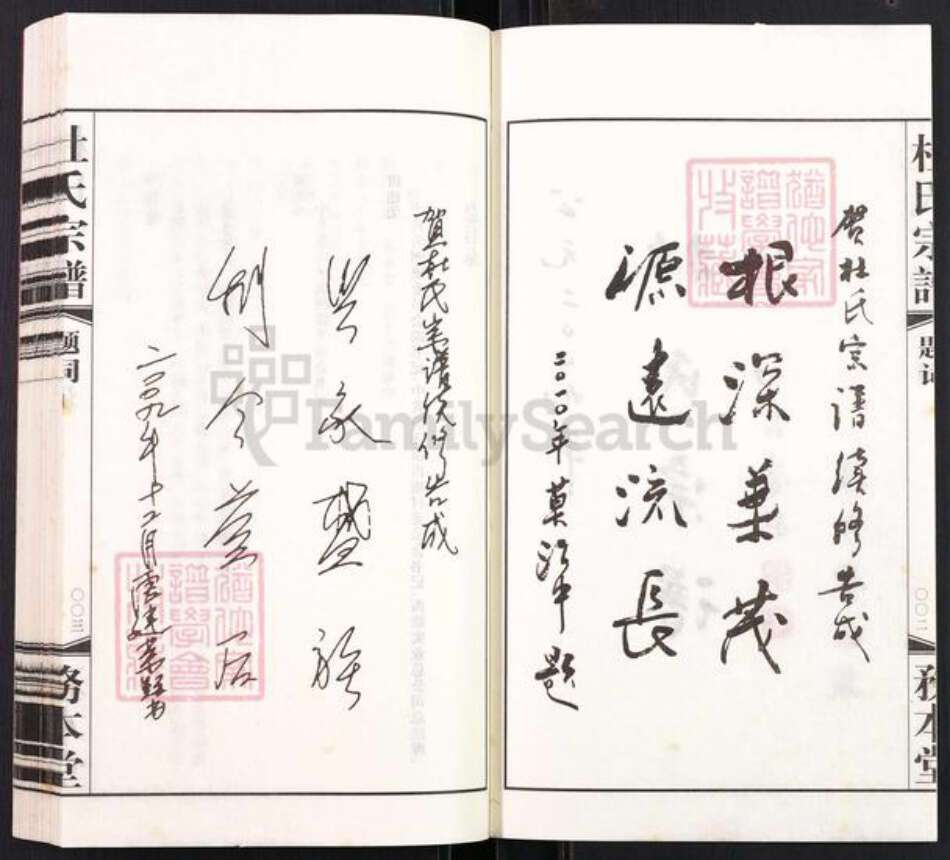 杜氏宗譜
題詞
〇〇二
務本堂
賀杜氏宗譜續修告成
根深葉茂
源遠流長
二〇一〇年莫
中題
譜學會
收藏
賀杜氏宗譜續修告成
盛族
創今
二〇〇九年十二月唐建
譜學會
杜氏宗譜
題詞
〇〇三
務本堂
FamilySearch